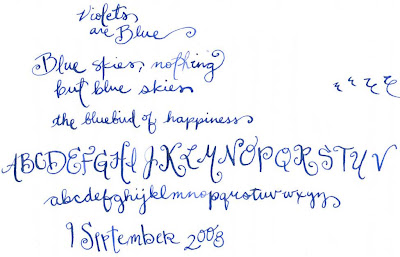 Violets
are Blue
Blue skies, nothing
but blue skies
the bluebird of happiness
ABCDEFGHIJKLMNOPQRSTUV
abcdefghijklmnopqrstuvwxyz
9 September 2008